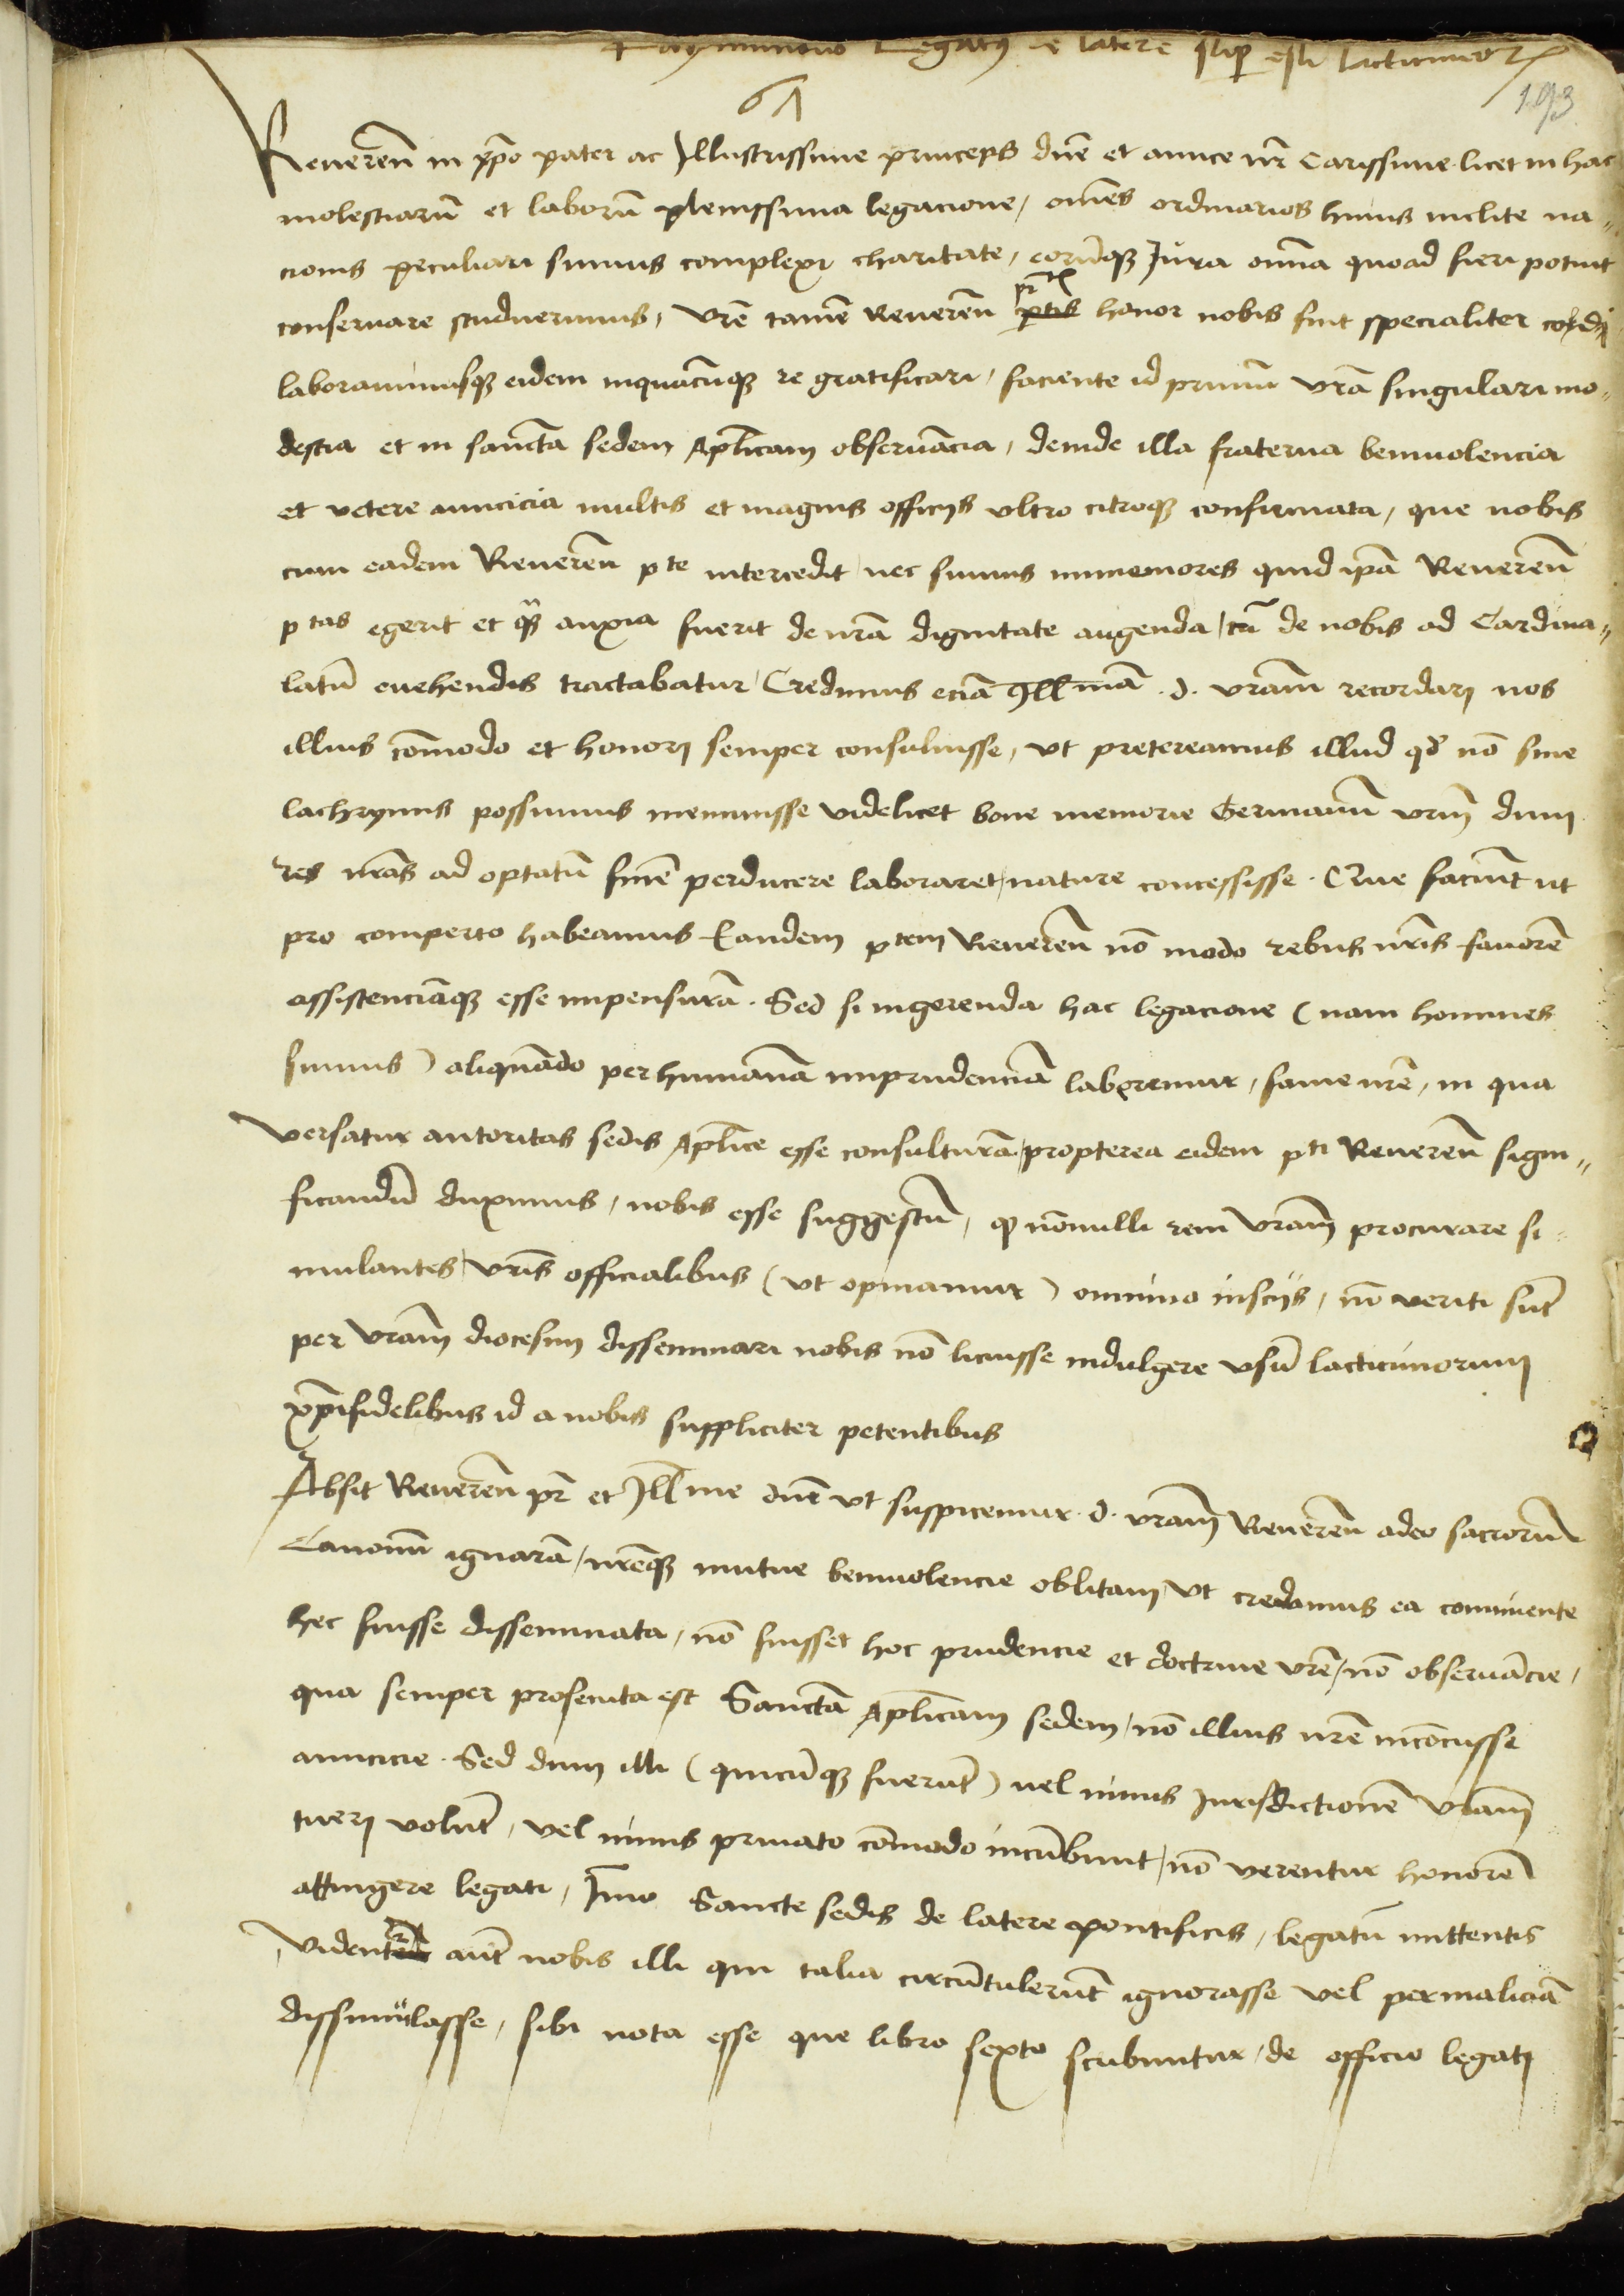 Raymundus Legatus de latere super esu lacticiniorum
61
193
Reuerendͫ in xp̄o pater ac Illustrissime princeps dn̄e et amice nr̄ Carissime. licet in hac
molestiarū et laborū plenissima legacione, om̄es ordinarios huius inclite na-
cionis peculiari simus complexi charitate, eorūqꝫ Iura omnia quoad fieri potuit
conseruare studuerimus, vrē tamē Reuerēn p̄tis honor nobis fuit specialiter cordi
laborauimusqꝫ eidem inquacūqꝫ re gratificari, faciente id primū vrā singulari mo-
destia et in sanctā sedem Aplicam obseruācia, deinde illa fraterna beniuolencia
et vetere amicicia multis et magnis officijs vltro citroqꝫ confirmata, que nobis
cum eadem Reuerēn pte intercedit nec sumus immemores quid ipā Reuerēn
ptas egerit et qꝫ anxia fuerit de nrā dignitate augenda, cū de nobis ad Cardina-
latū euehendis tractabatur, Credimus eciā Illmā .d. vram̄ recordari nos
illius cōmodo et honori semper consuluisse, vt pretereamus illud qd nō sine
lachrymis possumus meminisse videlicet bone memorie Germanū vrm̄ dum
res nrās ad optatū finē perducere laboraret, nature concessisse. Que faciūt ut
pro comperto habeamus Eandem ptem Reuerēn nō modo rebus nrīs fauorē
assistenciāqꝫ esse impensurā. Sed si in gerenda hac legacione (nam homines
sumus) aliquādo per humanā imprudenciā laboremur, fame nrē, in qua
versatur autoritas sedis Aplice esse consulturā, propterea eidem pti Reuerēn signi-
ficandū duximus, nobis esse suggestū, qꝫ nōnulli rem vram̄ procurare si-
mulantes, vrīs officialibus (vt opinamur) omnino inscijs, nō veriti sūt
per vram̄ diocesim disseminari nobis nō licuisse indulgere vsū lacticiniorum
xp̄ifidelibus id a nobis suppliciter petentibus
Absit Reuerēn pr̄ et Illme dnē vt suspicemur .d. vram̄ Reuerēn adeo sacrorū
Canonū ignarā, nrēqꝫ mutue beniuolencie oblitam, vt credamus ea conniuente
hec fuisse disseminata, nō fuisset hoc prudencie et doctrine vrē, nō obseruācie,
qua semper prosecuta est Sanctā Aplicam sedem, nō illius nrē inconcusse
amicicie. Sed dum illi (quicūqꝫ fuerūt) vel nimis Iurisdictionē vram̄
tueri volūt, vel nimis priuato cōmodo incūbunt, nō verentur honorē
attingere legati, Imo Sancte sedis de latere pontificis, legatū mittentis
videntur aūt nobis illi qui talia circūtulerūt ignorasse vel per maliciā
dissimulasse, sibi nota esse que libro sexto scribuntur, de officio legati